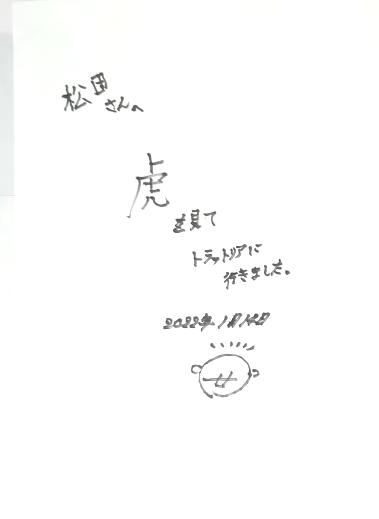 松田
さんの
虎
を見て
トラットリアに
行きました。
2022年1月14日